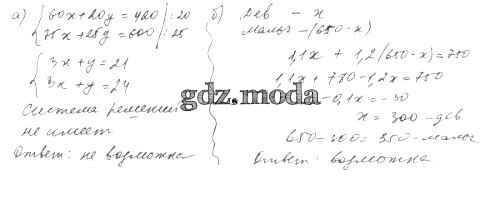 а) { 60x + 20y = 420 | : 20
75x + 25y = 600 | : 25
{ 3x + y = 21
3x + y = 24
Система решений
не имеет
Ответ: не возможна
б) Дев - x
мальч - (650 - x)
1,1x + 1,2(650 - x) = 750
1,1x + 780 - 1,2x = 750
- 0,1x = - 30
x = 300 - дев
650 - 300 = 350 - мальч
Ответ: возможна
gdz.moda